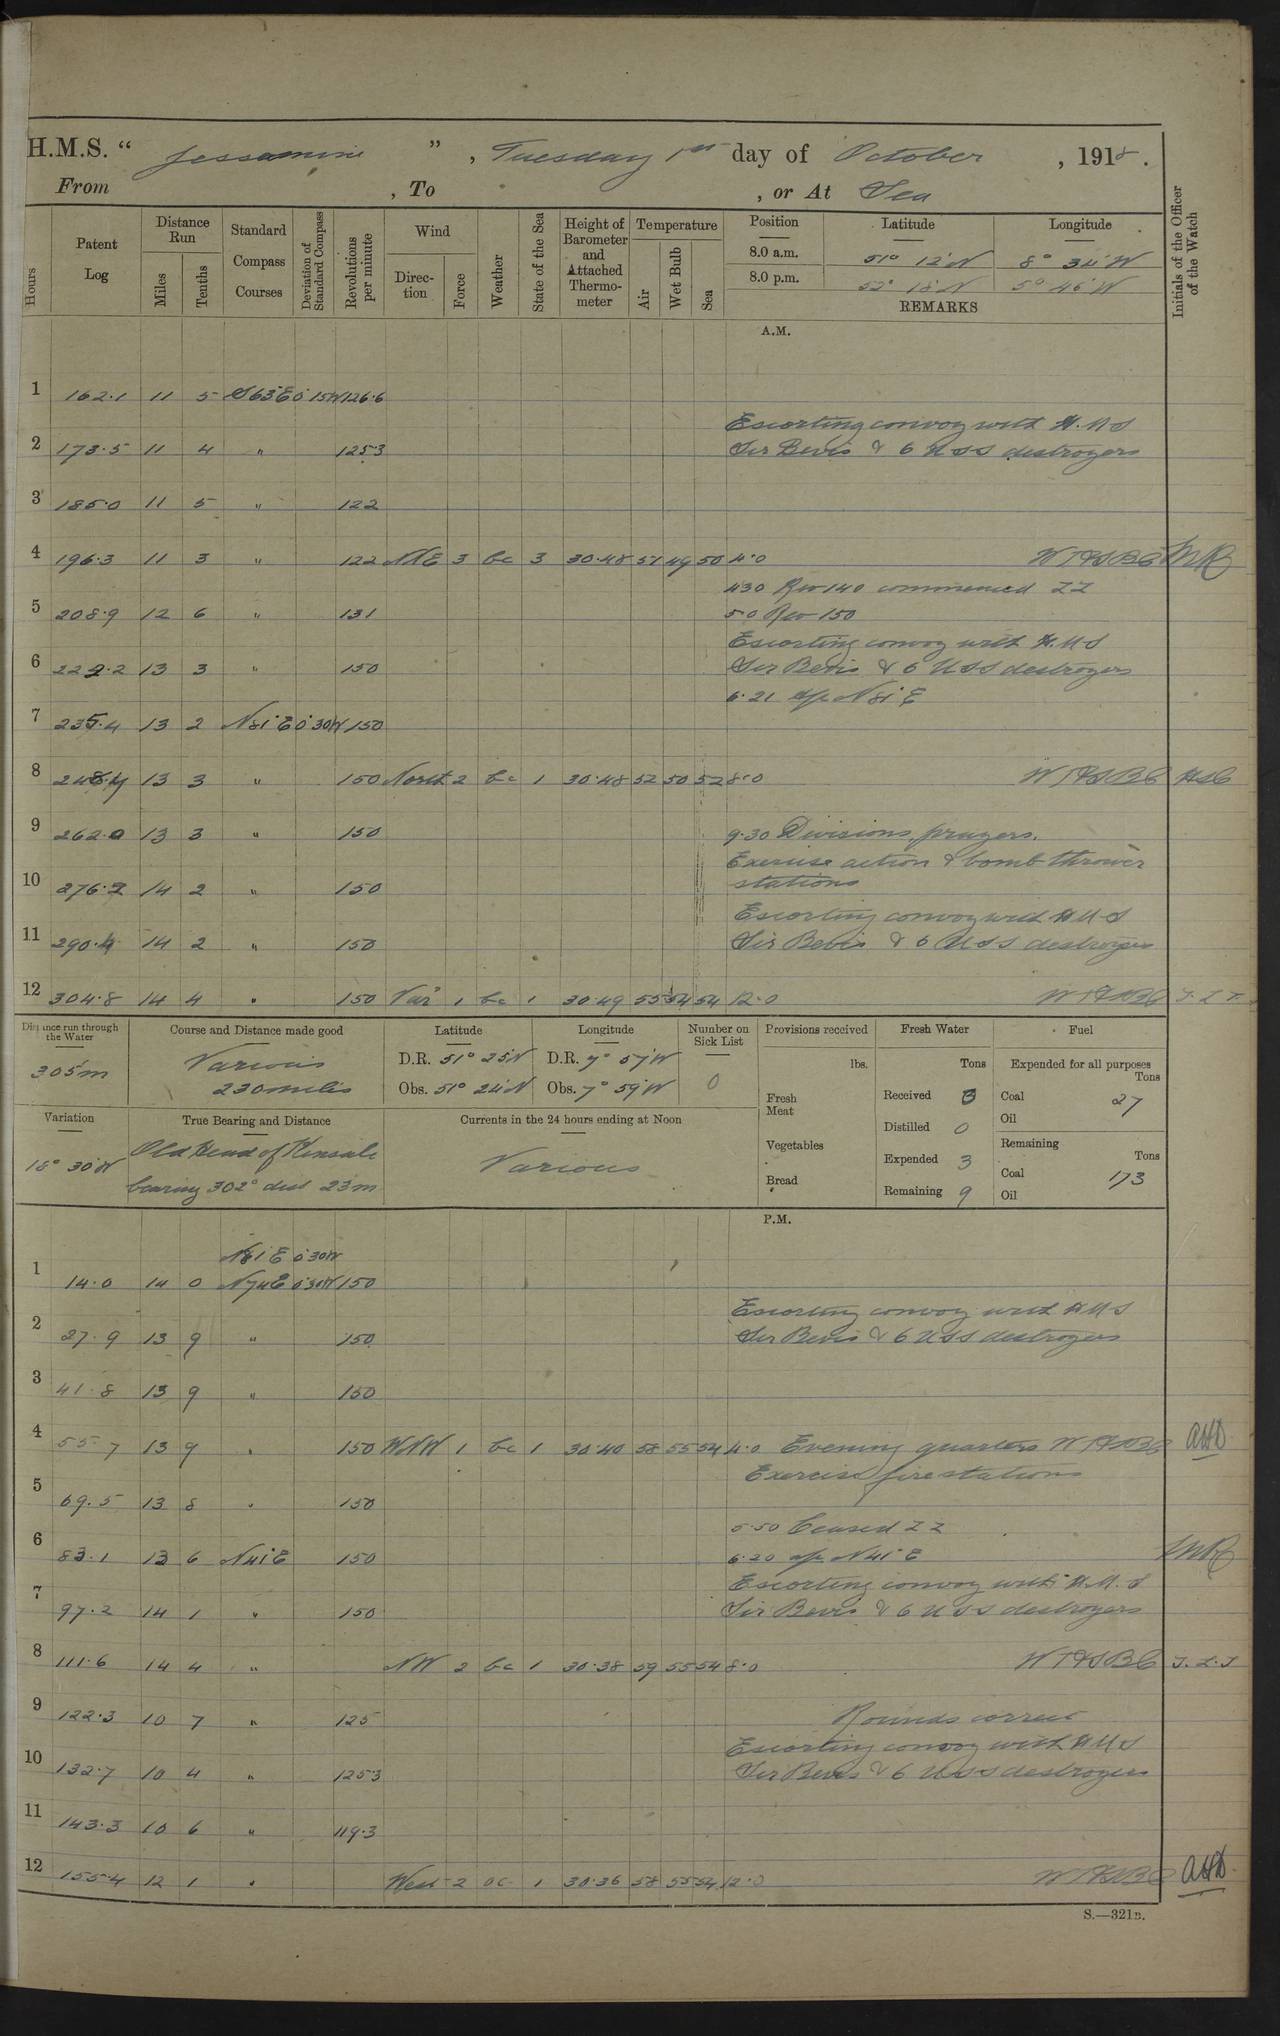 H.M.S. “ Jessamine ” , Tuesday 1st day of October , 1918 .
From , To , or At Sea
Hours
Patent Log
Distance Run
Miles
Tenths
Standard Compass Courses
Deviation of Standard Compass
Revolutions per minute
Wind
Direc-tion
Force
Weather
State of the Sea
Height of Barometer and Attached Thermo-meter
Temperature
Air
Wet Bulb
Sea
Position Latitude Longitude
8.0 a.m. 51° 12'N 8° 34'W
8.0 p.m. 52° 18'N 5° 46'W
REMARKS
Initials of the Officer of the Watch
A.M.
1 162.1 11 5 S63°E 0°15W 126.6
Escorting convoy with H.M.S
2 173.5 11 4 " 125.3 Sir Bevis & 6 USS destroyers
3 185.0 11 5 " 122
4 196.3 11 3 " 122 NNE 3 bc 3 30.48 51 49 50 4.0
4.30 Rev 140 commenced ZZ
5 208.9 12 6 " 131 5.0 Rev 150
Escorting convoy with H.M.S
6 222.2 13 3 " 150 Sir Bevis & 6 USS destroyers
6.21 a/c N81°E
7 235.4 13 2 N81°E 0°30W 150
8 248.7 13 3 " 150 North 2 bc 1 30.48 52 50 52 8.0
9 262.0 13 3 " 150 9.30 Divisions, prayers.
Exercise action & bomb thrower
10 276.2 14 2 " 150 stations
Escorting convoy with HMS
11 290.4 14 2 " 150 Sir Bevis & 6 USS destroyers
12 304.8 14 4 " 150 Var 1 bc 1 30.49 55 54 54 12.0
Distance run through the Water
305m
Course and Distance made good
Various
230 miles
Latitude
D.R. 51° 25'N
Obs. 51° 24'N
Longitude
D.R. 7° 57'W
Obs. 7° 59'W
Number on Sick List
0
Provisions received
lbs.
Fresh Meat
Vegetables
Bread
Fresh Water
Tons
Received 3
Distilled 0
Expended 3
Remaining 9
Fuel
Expended for all purposes
Tons
Coal 27
Oil
Remaining
Tons
Coal 173
Oil
Variation
18° 30'W
True Bearing and Distance
Old Head of Kinsale
bearing 302° dist 23m
Currents in the 24 hours ending at Noon
Various
P.M.
N81°E 0°30W
1 14.0 14 0 N74E 0°30W 150
Escorting convoy with HMS
2 27.9 13 9 " 150 Sir Bevis & 6 USS destroyers
3 41.8 13 9 " 150
4 55.7 13 9 " 150 WNW 1 bc 1 30.40 58 55 54 4.0 Evening quarters
Exercise fire stations
5 69.5 13 8 " 150
5.50 Ceased ZZ
6 83.1 13 6 N41°E 150 6.20 a/c N41°E
Escorting convoy with H.M.S
7 97.2 14 1 " 150 Sir Bevis & 6 USS destroyers
8 111.6 14 4 " NW 2 bc 1 30.38 59 55 54 8.0
9 122.3 10 7 " 125 Rounds correct
Escorting convoy with HMS
10 132.7 10 4 " 125.3 Sir Bevis & 6 USS destroyers
11 143.3 10 6 " 119.3
12 155.4 12 1 " West 2 oc 1 30.36 58 55 54 12.0
S.—321B.